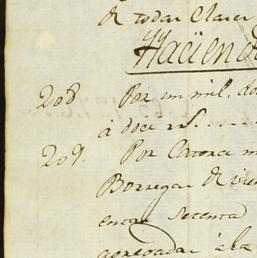 de todas Clases
Hacienda
208 Por un mil, do
á doce rs.
209. Por Catorce m
Borregas de vien
entre Setenta
agregadas á la